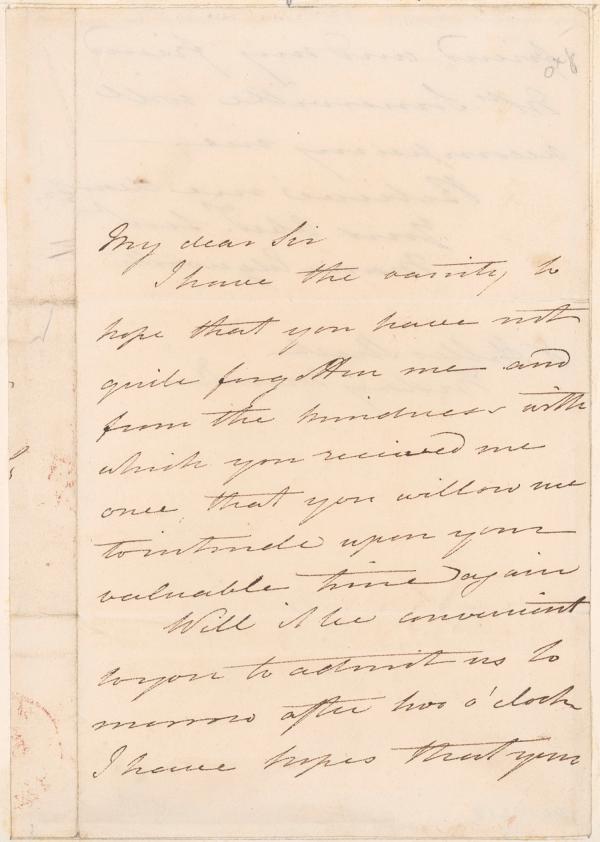 My dear Sir
I have the vanity to
hope that you have not
quite forgotten me and
from the kindness with
which you recieved me
once that you will me
to intrude upon your
valuable time again
Will it be convenient
to you to admit us to
morrow after two o'clock
I have hopes that your